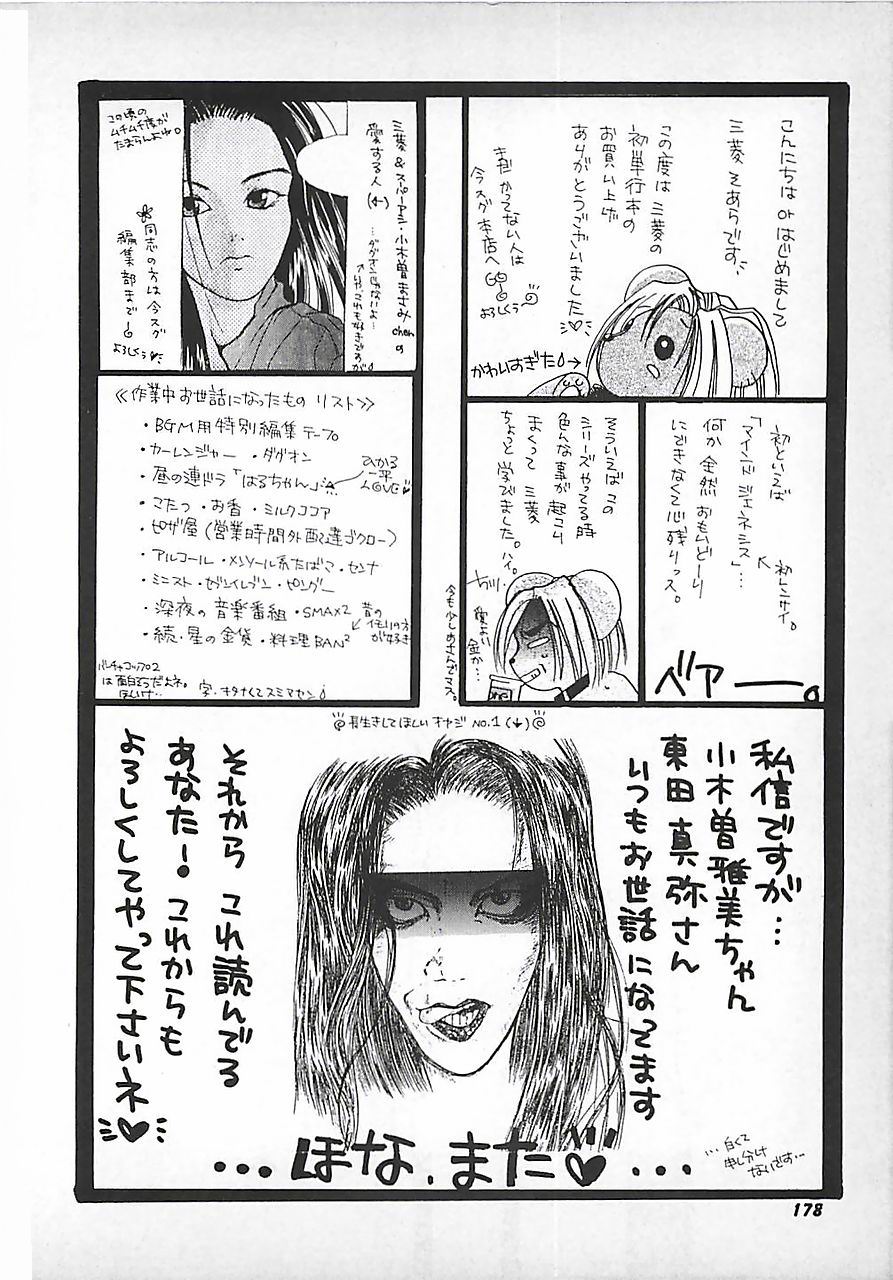 こんにちは orはじめまして
三菱 そあらです
この度は 三菱の
初単行本の
お買い上げ
ありがとうございました♡
まだ かってない人は
今スグ 本店へGO
よろしくぅ
かわいすぎた
初といえば
「マインド ジェネシス」…
初レンサイ。
何か全然 おもいどーり
にできなくて心残りっス。
ベアー。
そういえば この
シリーズやってる時
色んな事が起こり
まくって 三菱
ちょっと学びました。ハイ。
愛よい
金か…
今も少しあさんでマス。
三菱&スパーアシ・小木曽まさみchanの
愛する人(←)
…ダグオンじゃないよ…
これも好きですが
この頃の
ムチムチ度が
たまらんよね。
同志の方は今スグ
編集部まで
よろしくぅ♥
≪作業中お世話になったもの リスト≫
・BGM用特別編集テープ
・カーレンジャー・ダグオン
・昼の連ドラ「はるちゃん」
ひかる
一平
LOVE♥
・コタツ・お香・ミルクココア
・ピザ屋(営業時間外配達ゴクロー)
・アルコール・メンソール系たばこ・センナ
・ミニスト・セブンイレブン・ピングー
・深夜の音楽番組・SMAX2
・続・星の金貨・料理BAN²
昔の
イモリの方
が好き
バーチャコップ2
は面白そうだよネ。
ほしいけ…
字・キタナくてスミマセン
長生きしてほしいオヤジ NO.1(↓)
私信ですが…
小木曽雅美ちゃん
東田真弥さん
いつもお世話になってます
それから これ読んでる
あなた! これからも
よろしくしてやって下さいネ
…ほな、また♡…
…白くて
申し分け
ないです…
178